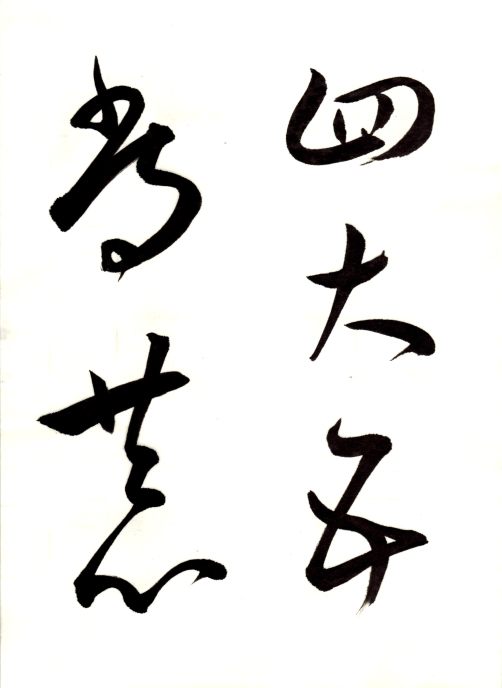 四大五
常恭